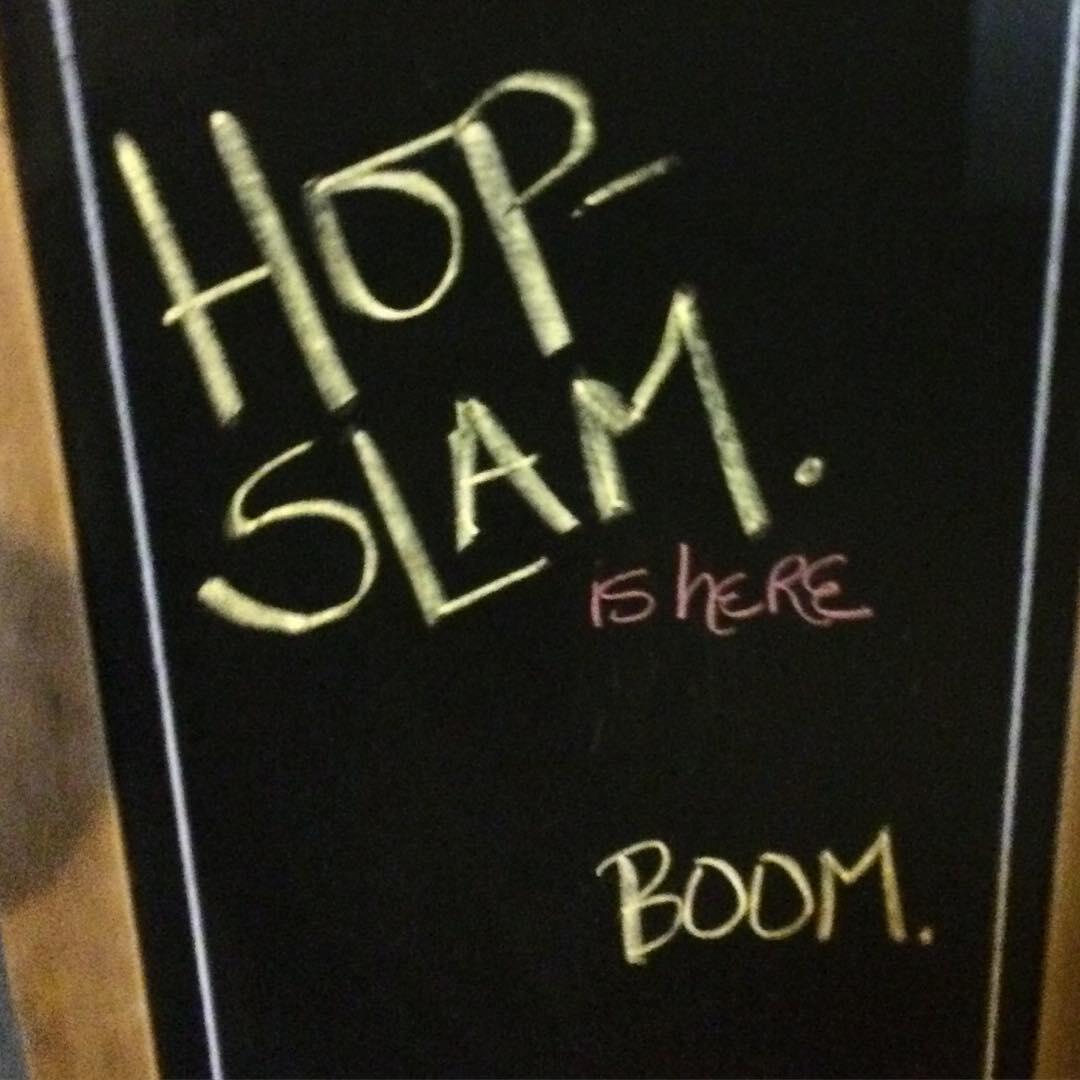 HOP-
SLAM.
IS hERE
BOOM.